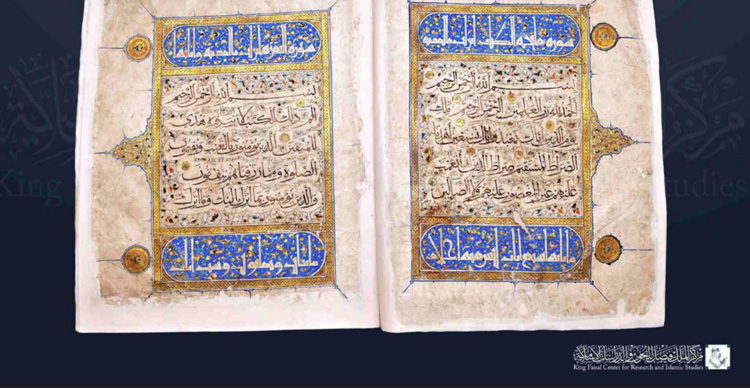 سورة فاتحة الكتاب
بسم الله الرحمن الرحيم
الحمد لله رب العلمين الرحمن الرحيم ملك
يوم الدين اياك نعبد واياك نستعين اهدنا
الصراط المستقيم صراط الذين انعمت
عليهم غير المغضوب عليهم ولا الضالين
سورة البقرة
بسم الله الرحمن الرحيم
الم ذلك الكتب لا ريب فيه هدى
للمتقين الذين يؤمنون بالغيب ويقيمون
الصلوة ومما رزقناهم ينفقون
والذين يؤمنون بما انزل اليك وما انزل
مركز الملك فيصل للبحوث والدراسات الإسلامية
King Faisal Center for Research and Islamic Studies